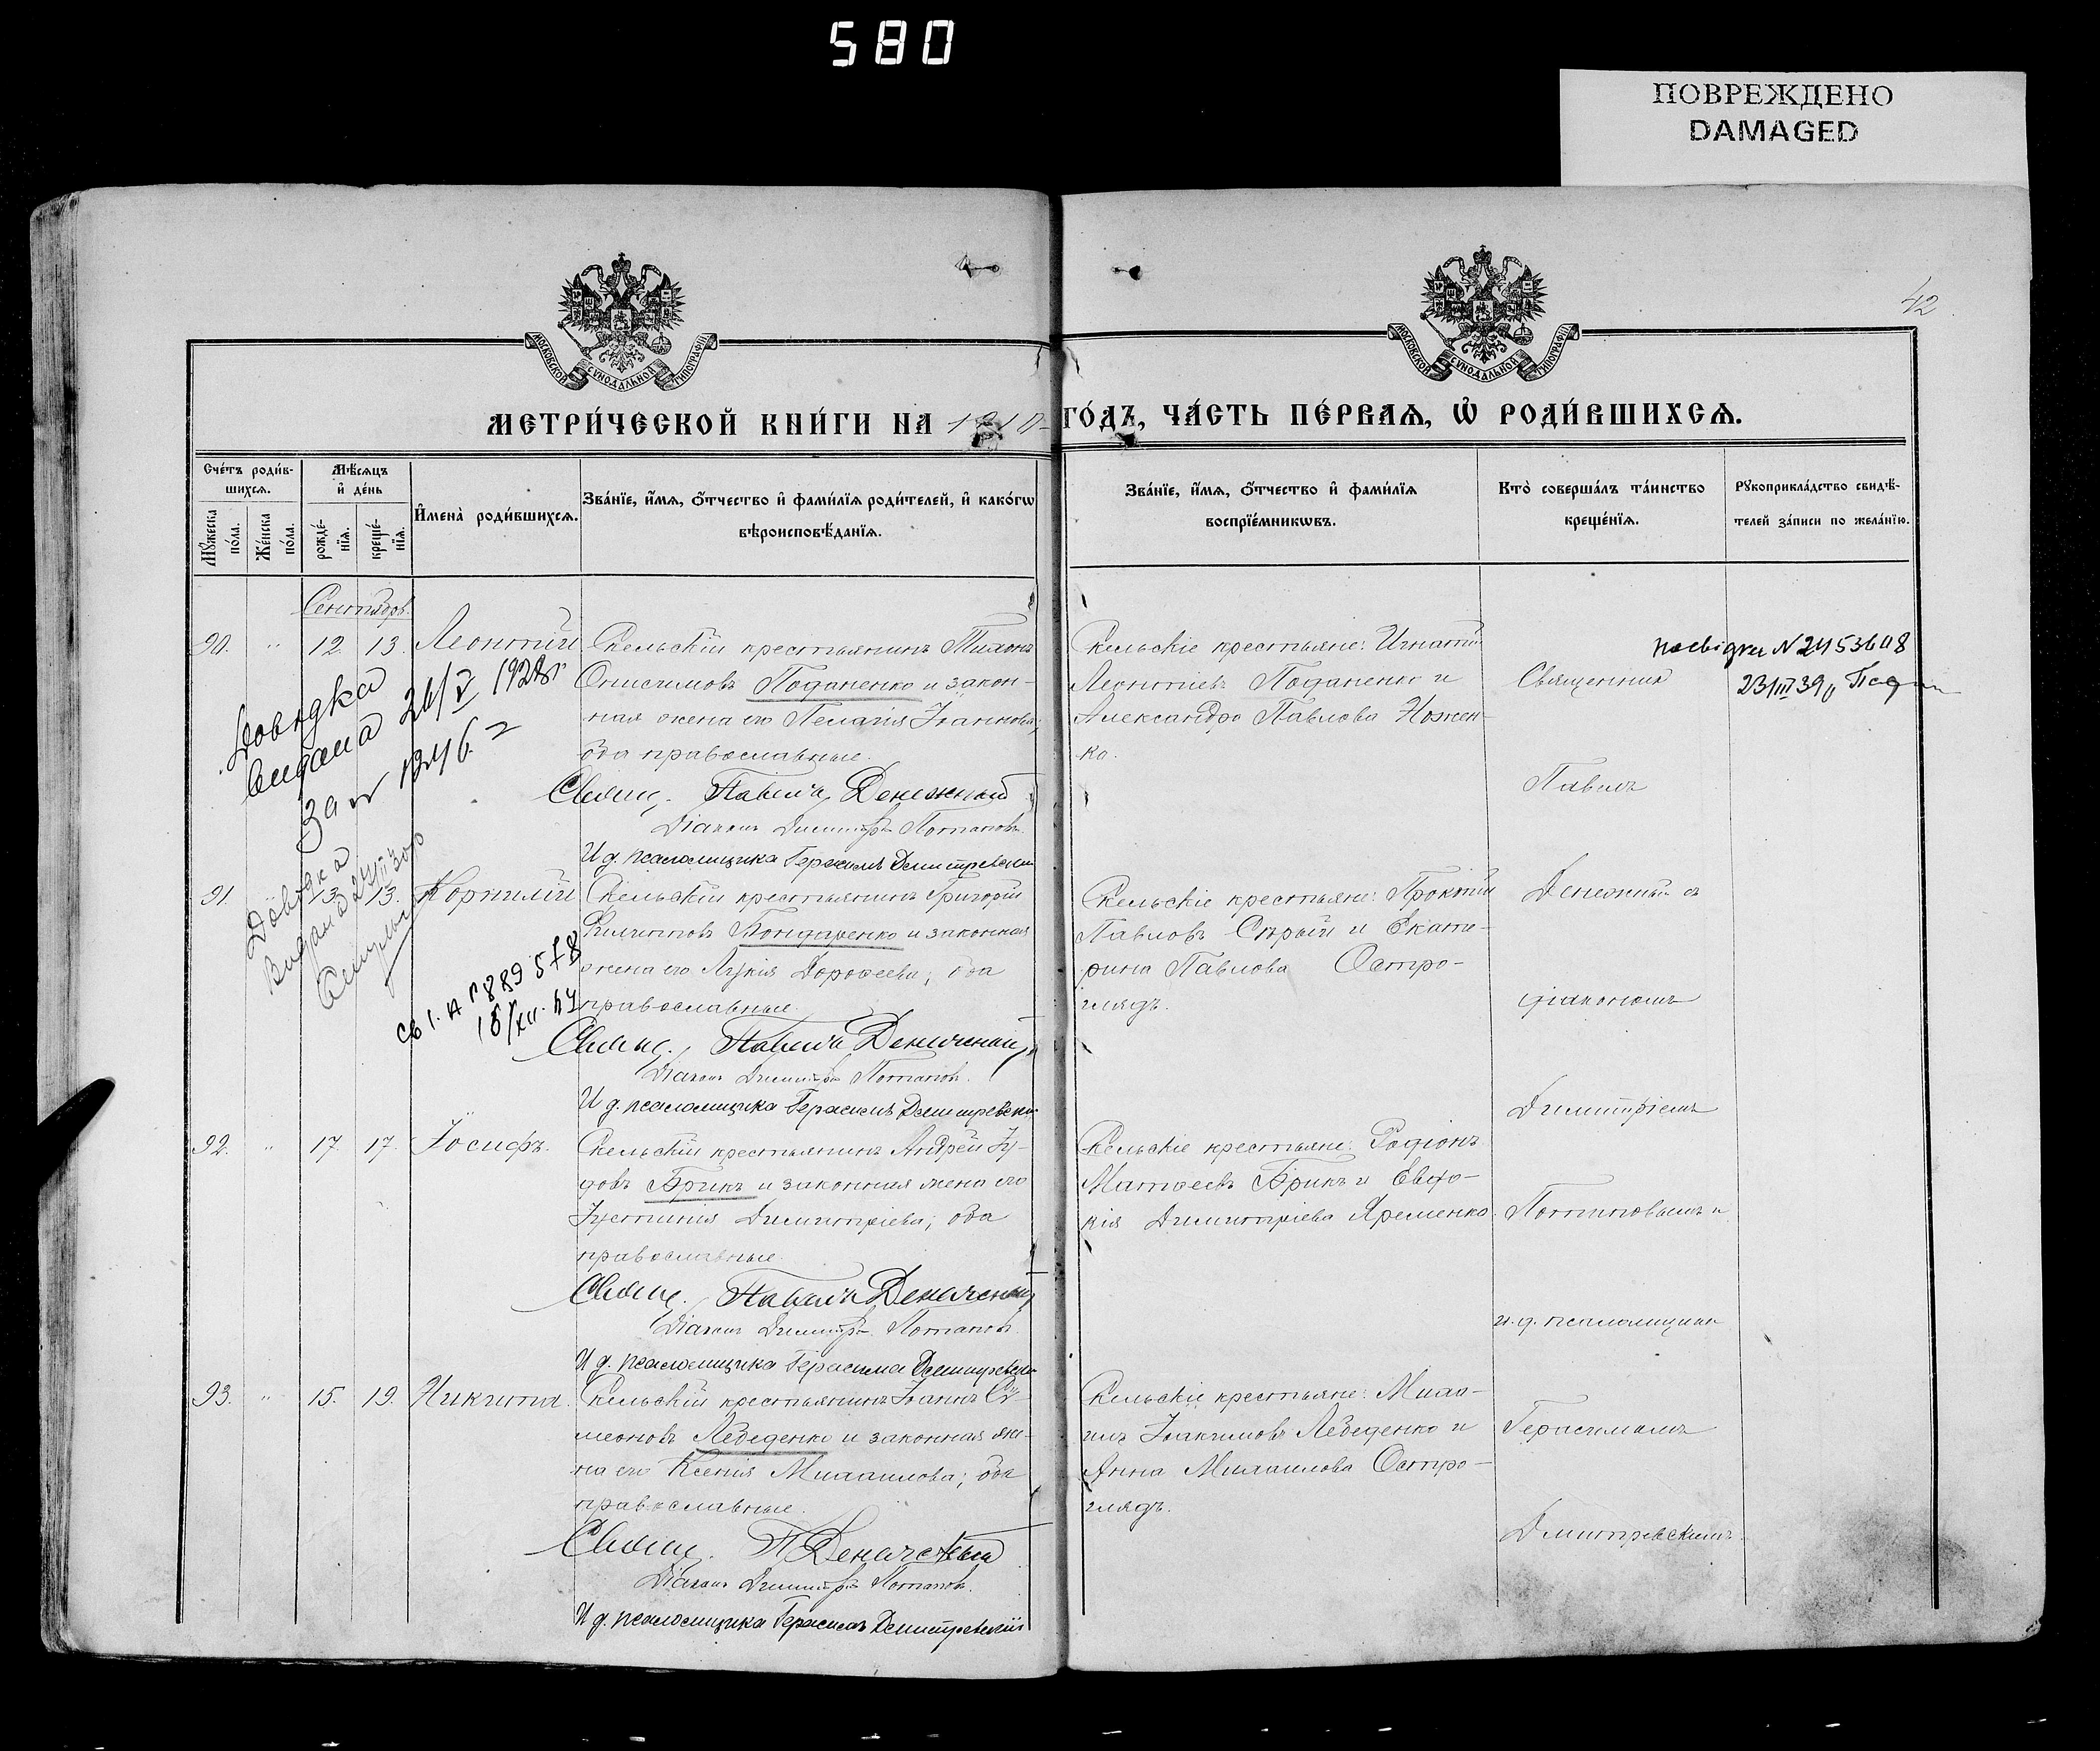 580
ПОВРЕЖДЕНО
DAMAGED
42
МОСКОВСКОЙ СУНОДАЛЬНОЙ ТИПОГРАФІИ
МОСКОВСКОЙ СУНОДАЛЬНОЙ ТИПОГРАФІИ
МЕТРИ́ЧЕСКОЙ КНИ́ГИ НА 1910 ГО́ДЪ, ЧА́СТЬ ПЕ́РВАѦ, Ѡ҆ РОДИ́ВШИХСѦ.
Счётъ роди́в-
шихсѧ.
Мѣ́сѧцъ
и҆ де́нь
Мꙋ́жеска по́ла.
Же́нска по́ла.
рожде́-
нїѧ.
креще́-
нїѧ.
И҆мена̀ роди́вшихсѧ.
Зва́нїе, и҆́мѧ, ѻ҆́тчество и҆ фами́лїѧ роди́телей, и҆ како́гѡ
вѣроисповѣ́данїѧ.
Зва́нїе, и҆́мѧ, ѻ҆́тчество и҆ фами́лїѧ
воспрїе́мникѡвъ.
Кто̀ соверша́лъ та́инство
креще́нїѧ.
Рꙋкоприкла́дство свидѣ́-
телей за́писи по жела́нїю.
Сентябрь
90. " 12. 13. Леонтій
Сельскій крестьянинъ Тихонъ
Онисимовъ Поданенко и закон-
ная жена его Пелагія Іоаннова;
оба православные.
Свящ. Павелъ Денежный
Діаконъ Димитрій Потаповъ
И д. псаломщика Герасимъ Дмитревскій
Сельскіе крестьяне: Игнатій
Леонтіевъ Поданенко и
Александра Павлова Ножен-
ко.
Довідка
видана 26/V 1928г
За № 1246
N 2453648
23/III 39
91. " 13. 13. Корнилій
Сельскій крестьянинъ Григорій
Филипповъ Бондаренко и законная
жена его Лукія Дороѳеева; оба
православные.
Свящ. Павелъ Денежный
Діаконъ Димитрій Потаповъ.
И д. псаломщика Герасимъ Дмитревскій
Сельскіе крестьяне:
Павловъ Сѣрый и Екате-
рина Павлова Остро-
глядъ.
Довідка
Видана
92. " 17. 17. Іосифъ.
Сельскій крестьянинъ Андрей Іу-
довъ Брикъ и законная жена его
Іустинія Димитріева; оба
православные.
Свящ. Павелъ Денежный
Діаконъ Димитрій Потаповъ
И д. псаломщика Герасимъ Дмитревскій
Сельскіе крестьяне: Родіонъ
Матѳеевъ Брикъ и Евдо-
кія Димитріева Яременко.
93. " 15. 19. Никита.
Сельскій крестьянинъ Іоаннъ Си-
меоновъ Лебеденко и законная же-
на его Ксенія Михаилова; оба
православные.
Свящ. П Денежный
Діаконъ Димитрій Потаповъ.
И д. псаломщика Герасимъ Дмитревскій
Сельскіе крестьяне: Миха-
илъ Іоакимовъ Лебеденко и
Анна Михаилова Остро-
глядъ.
Священник
Павелъ
Денежный съ
діакономъ
Димитріемъ
Потаповымъ и
и. д. псаломщика
Герасимомъ
Дмитревскимъ.